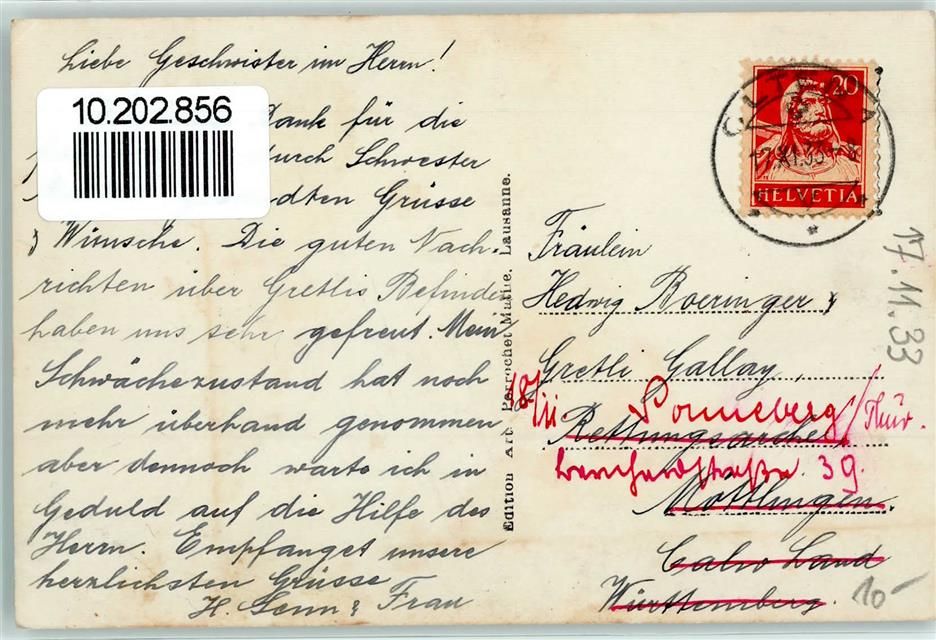 Liebe Geschwister im Herrn!
10.202.856
Dank für die
durch Schwester
Grüsse
& Wünsche. Die guten Nach-
richten über Gretlis Befinden
haben uns sehr gefreut. Mein
Schwächezustand hat noch
mehr überhand genommen
aber dennoch warte ich in
Geduld auf die Hilfe des
Herrn. Empfanget unsere
herzlichsten Grüsse
H. Senn & Frau
Edition Art. Perrochet Matile. Lausanne.
OLTEN
20
HELVETIA
17.11.33
Fräulein
Hedwig Boeringer &
Gretli Gallay,
Sonneberg/Thür.
Rettungsarche
Bernhardstraße 39.
Möttlingen.
Calw Land
Württemberg.
10-